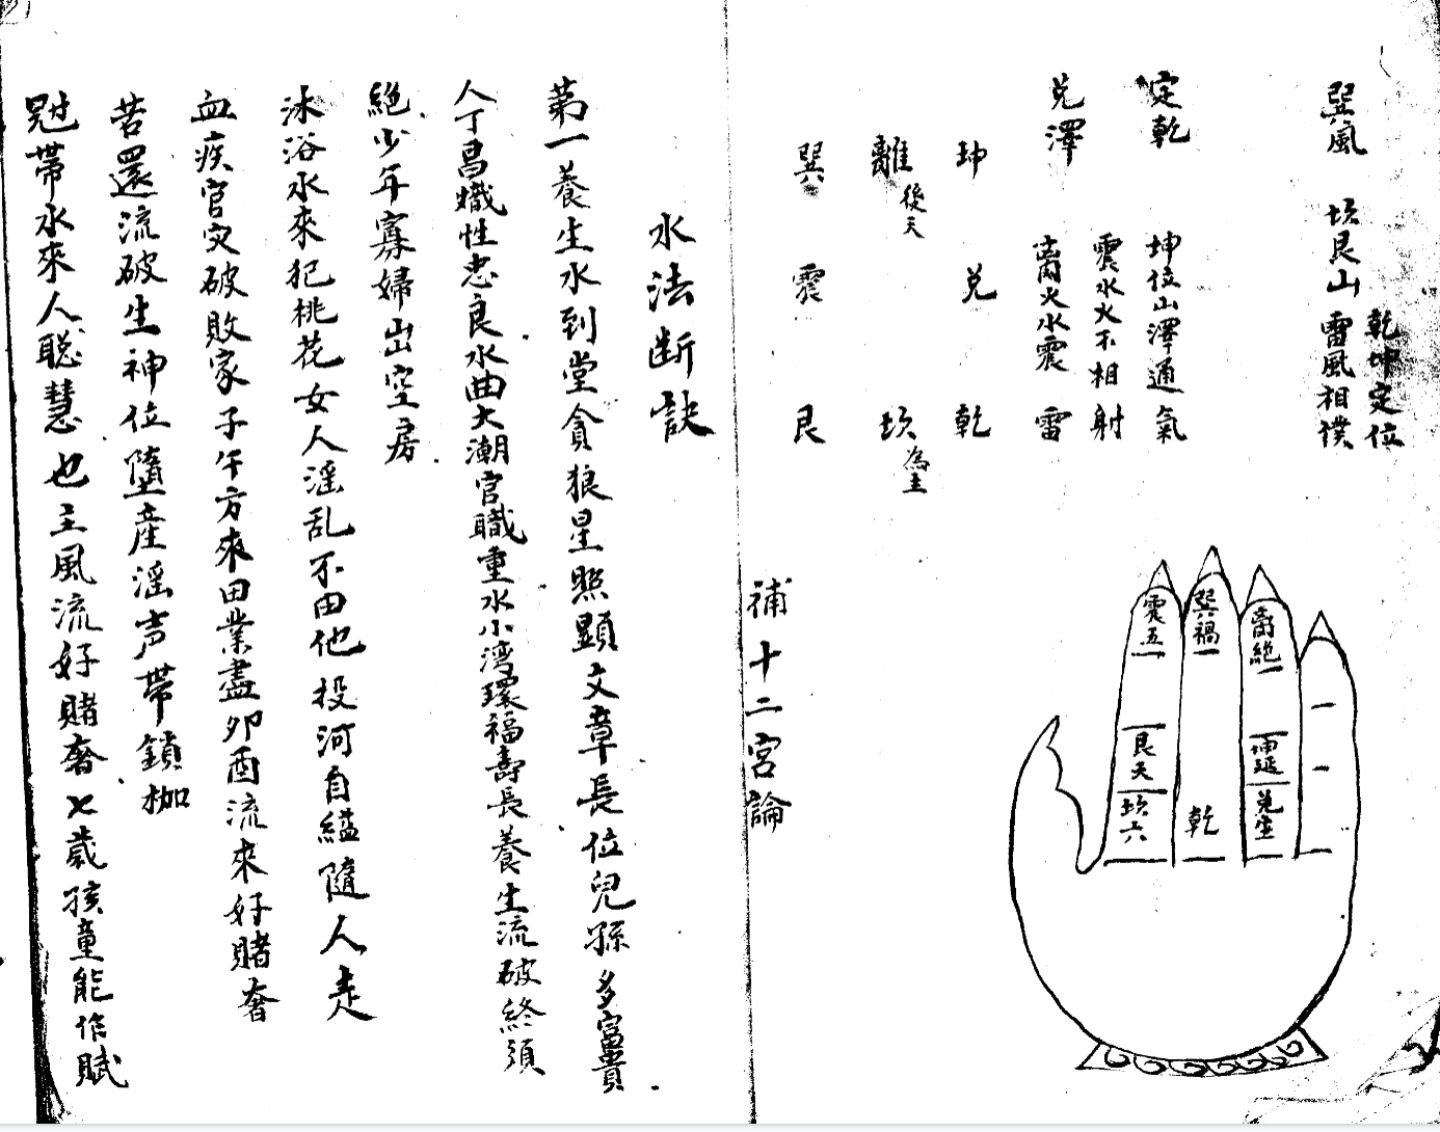 乾坤定位
巽風 坎艮山 雷風相僕
定乾 坤位山澤通氣
震水火不相射
兌澤 离火水震 雷
坤 兌 乾
離 後天 坎 為主
巽 震 艮
震五
艮天
坎六
巽禍
乾
离絶
坤延
兌生
補十二宮論
水法断訣
第一養生水到堂貪狼星照顯文章長位兒孫多富貴
人丁昌熾性忠良水曲大潮官職重水小湾環福壽長養生流破終須
絕少年寡婦出空房
沐浴水來犯桃花女人滛乱不由他投河自縊隨人走
血疾官灾破敗家子午方來田業盡夘酉流來好賭奢
若還流破生神位墮産滛声帶鎖枷
冠帶水來人聡慧也主風流好賭奢七歲孩童能作賦